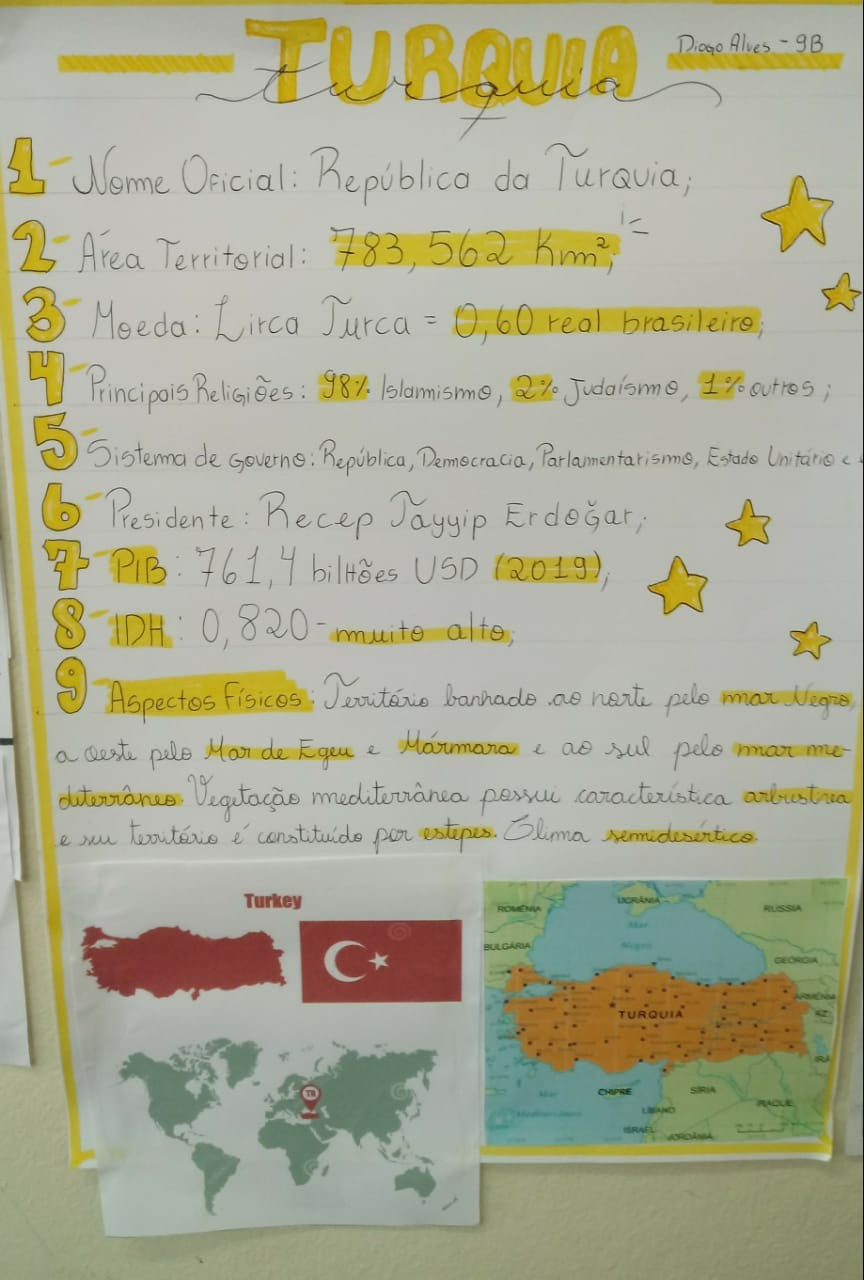 TURQUIA
Diogo Alves - 9B
turquia
1- Nome Oficial: República da Turquia;
2- Área Territorial: 783,562 Km²;
3- Moeda: Lirca Turca = 0,60 real brasileiro;
4- Principais Religiões: 98% Islamismo, 2% Judaísmo, 1% outros;
5- Sistema de Governo: República, Democracia, Parlamentarismo, Estado Unitário e
6- Presidente: Recep Tayyip Erdoğar;
7- PIB: 761,4 bilhões USD (2019);
8- IDH: 0,820 - muito alto;
9- Aspectos Físicos: Território banhado ao norte pelo mar Negro,
a oeste pelo Mar de Egeu e Mármara e ao sul pelo mar me-
diterrâneo. Vegetação mediterrânea possui característica arbustrea
e seu território é constituído por estepes. Clima semidesértico.
Turkey
TR
ROMÊNIA
UCRÂNIA
RÚSSIA
Mar
Negro
BULGÁRIA
GEÓRGIA
ARMÊNIA
AZ.
TURQUIA
IRÃ
CHIPRE
SÍRIA
Mar
Mediterrâneo
LÍBANO
IRAQUE
ISRAEL
JORDÂNIA